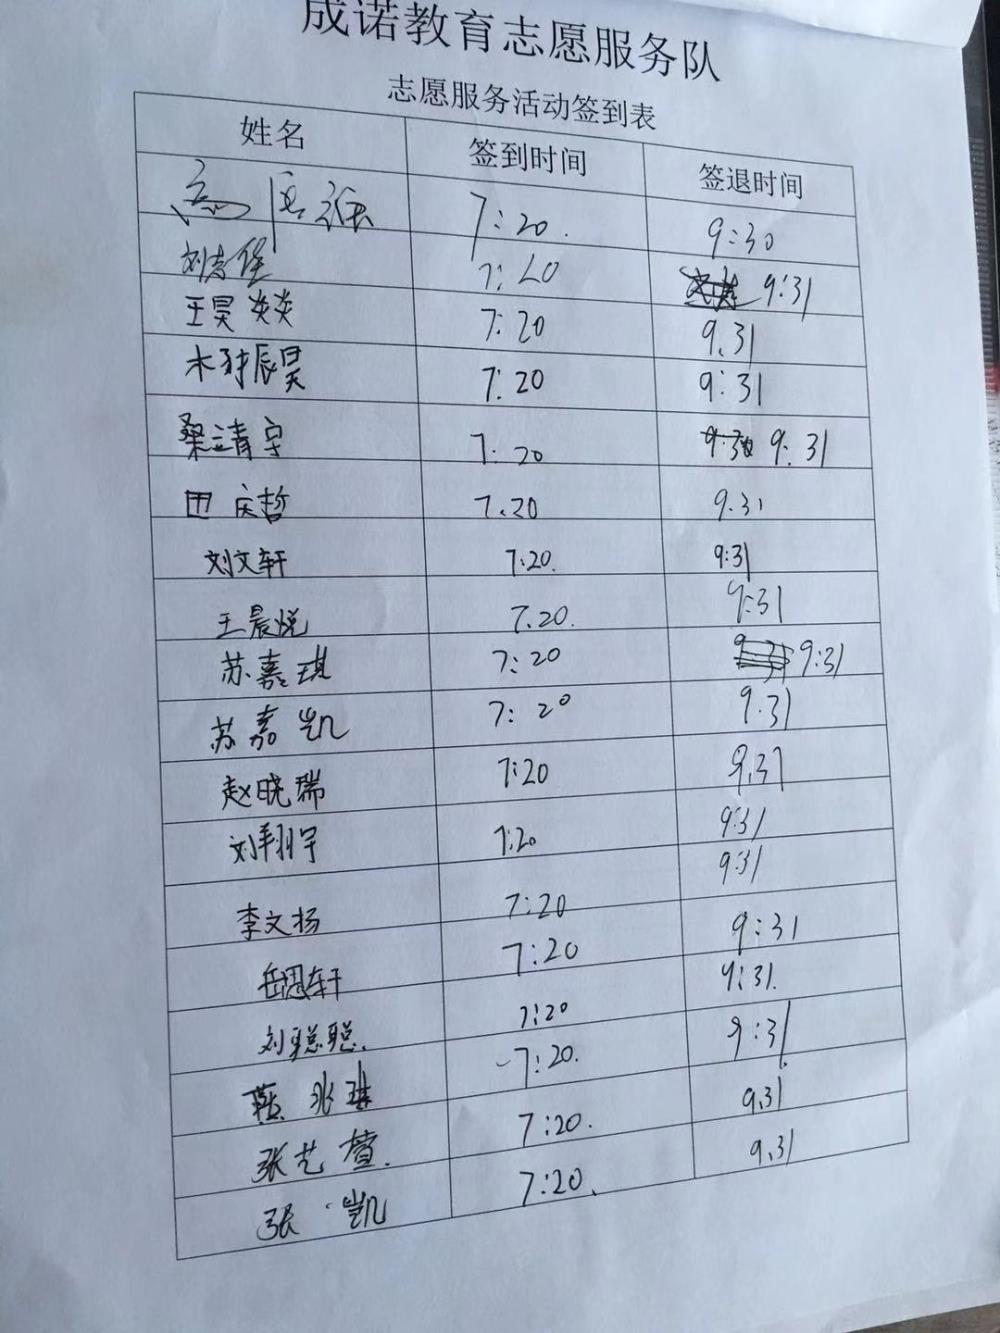 成诺教育志愿服务队
志愿服务活动签到表
姓名 签到时间 签退时间
7:20. 9:30
刘志华 7:20 9:31
王昊焱焱 7:20 9.31
林辰昊 7:20 9:31
桑清宇 7.20 9.31
田庆哲 7.20 9.31
刘文轩 7:20. 9:31
王晨悦 7.20. 9:31
苏嘉琪 7:20 9:31
苏嘉凯 7:20 9.31
赵晓瑞 7:20 9.31
刘翔宇 7:20 9:31
李文杨 7:20 9:31
岳思轩 7:20 9:31
刘聪聪. 7:20 9:31.
7:20. 9:31
张艺萱. 7:20. 9.31
张凯 7:20. 9.31